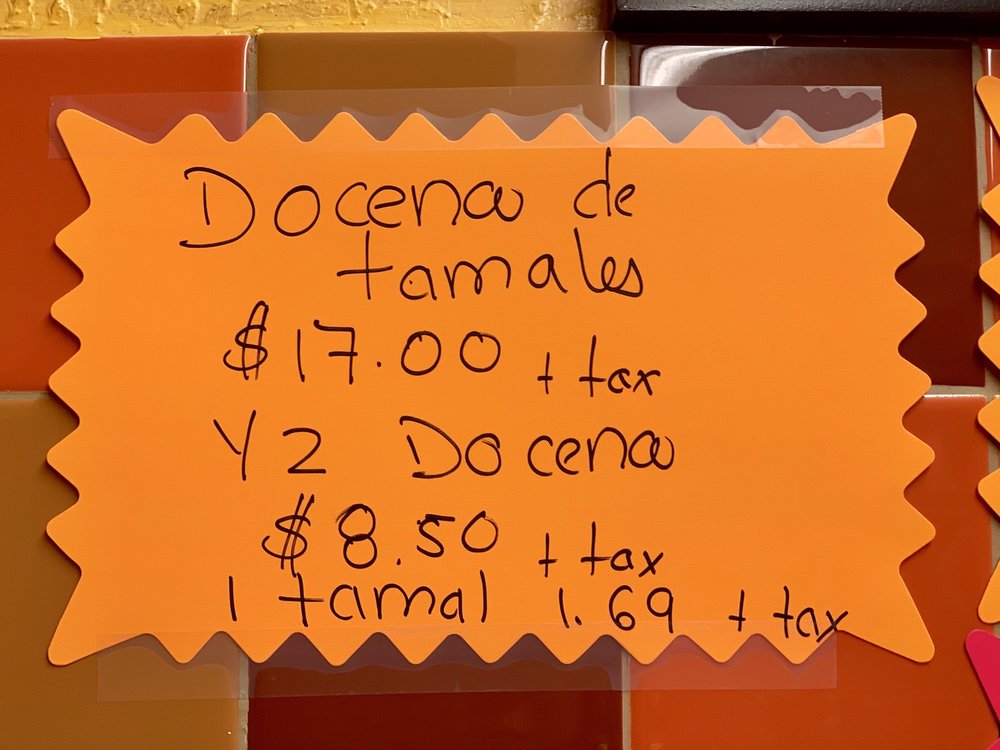 Docena de
tamales
$17.00 + tax
1/2 Docena
$8.50 + tax
1 tamal 1.69 + tax